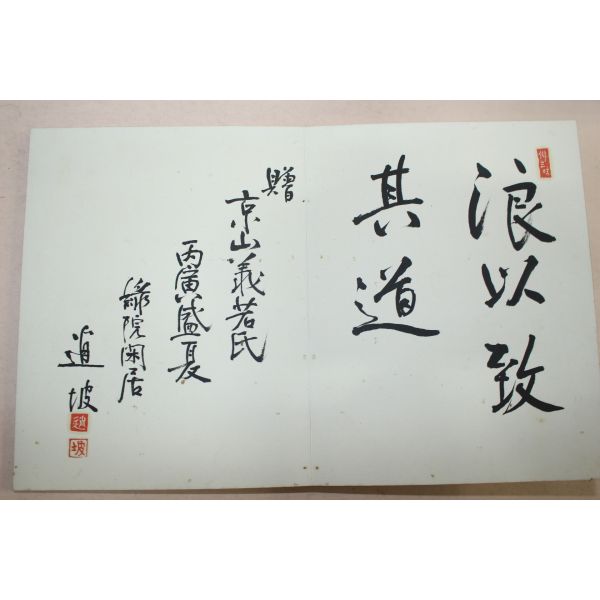 浪以致
其道
贈
京山義若氏
丙寅盛夏
綠院闲居
逍坡